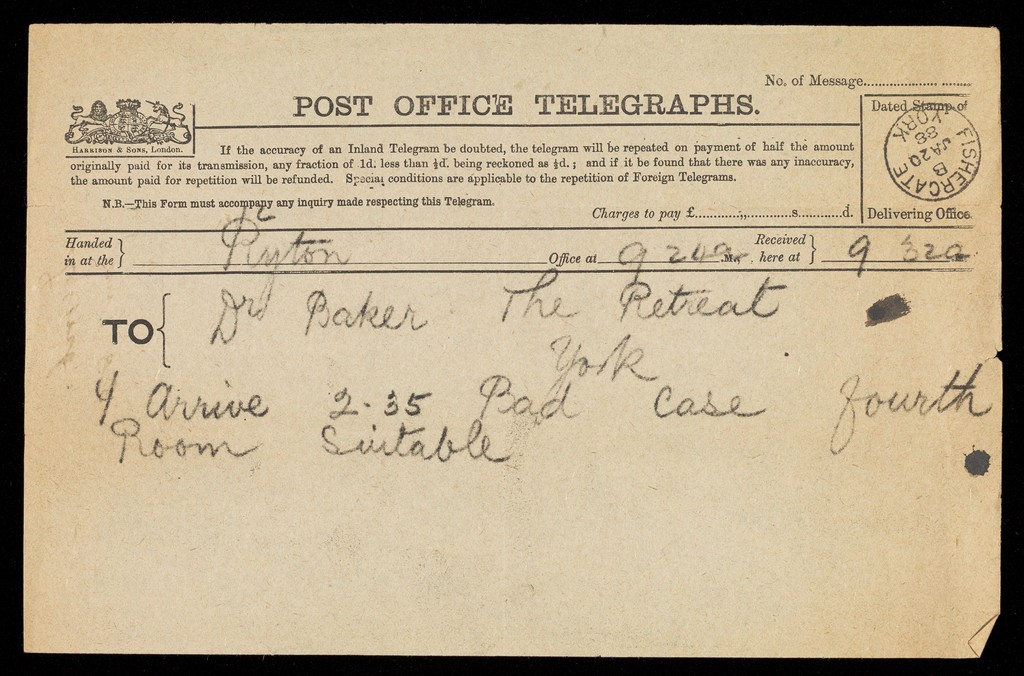 No. of Message
POST OFFICE TELEGRAPHS.
HARRISON & SONS, LONDON.
If the accuracy of an Inland Telegram be doubted, the telegram will be repeated on payment of half the amount
originally paid for its transmission, any fraction of 1d. less than ½d. being reckoned as ½d.; and if it be found that there was any inaccuracy,
the amount paid for repetition will be refunded. Special conditions are applicable to the repetition of Foreign Telegrams.
N.B.—This Form must accompany any inquiry made respecting this Telegram.
Charges to pay £ s. d.
Dated Stamp of
FISHERGATE YORK
B
JA 20
88
Delivering Office.
Handed in at the } Ryton Office at 9 24a .M., Received here at } 9 32a
TO { Dr Baker The Retreat
York
Arrive 2-35 Bad Case fourth
Room Suitable